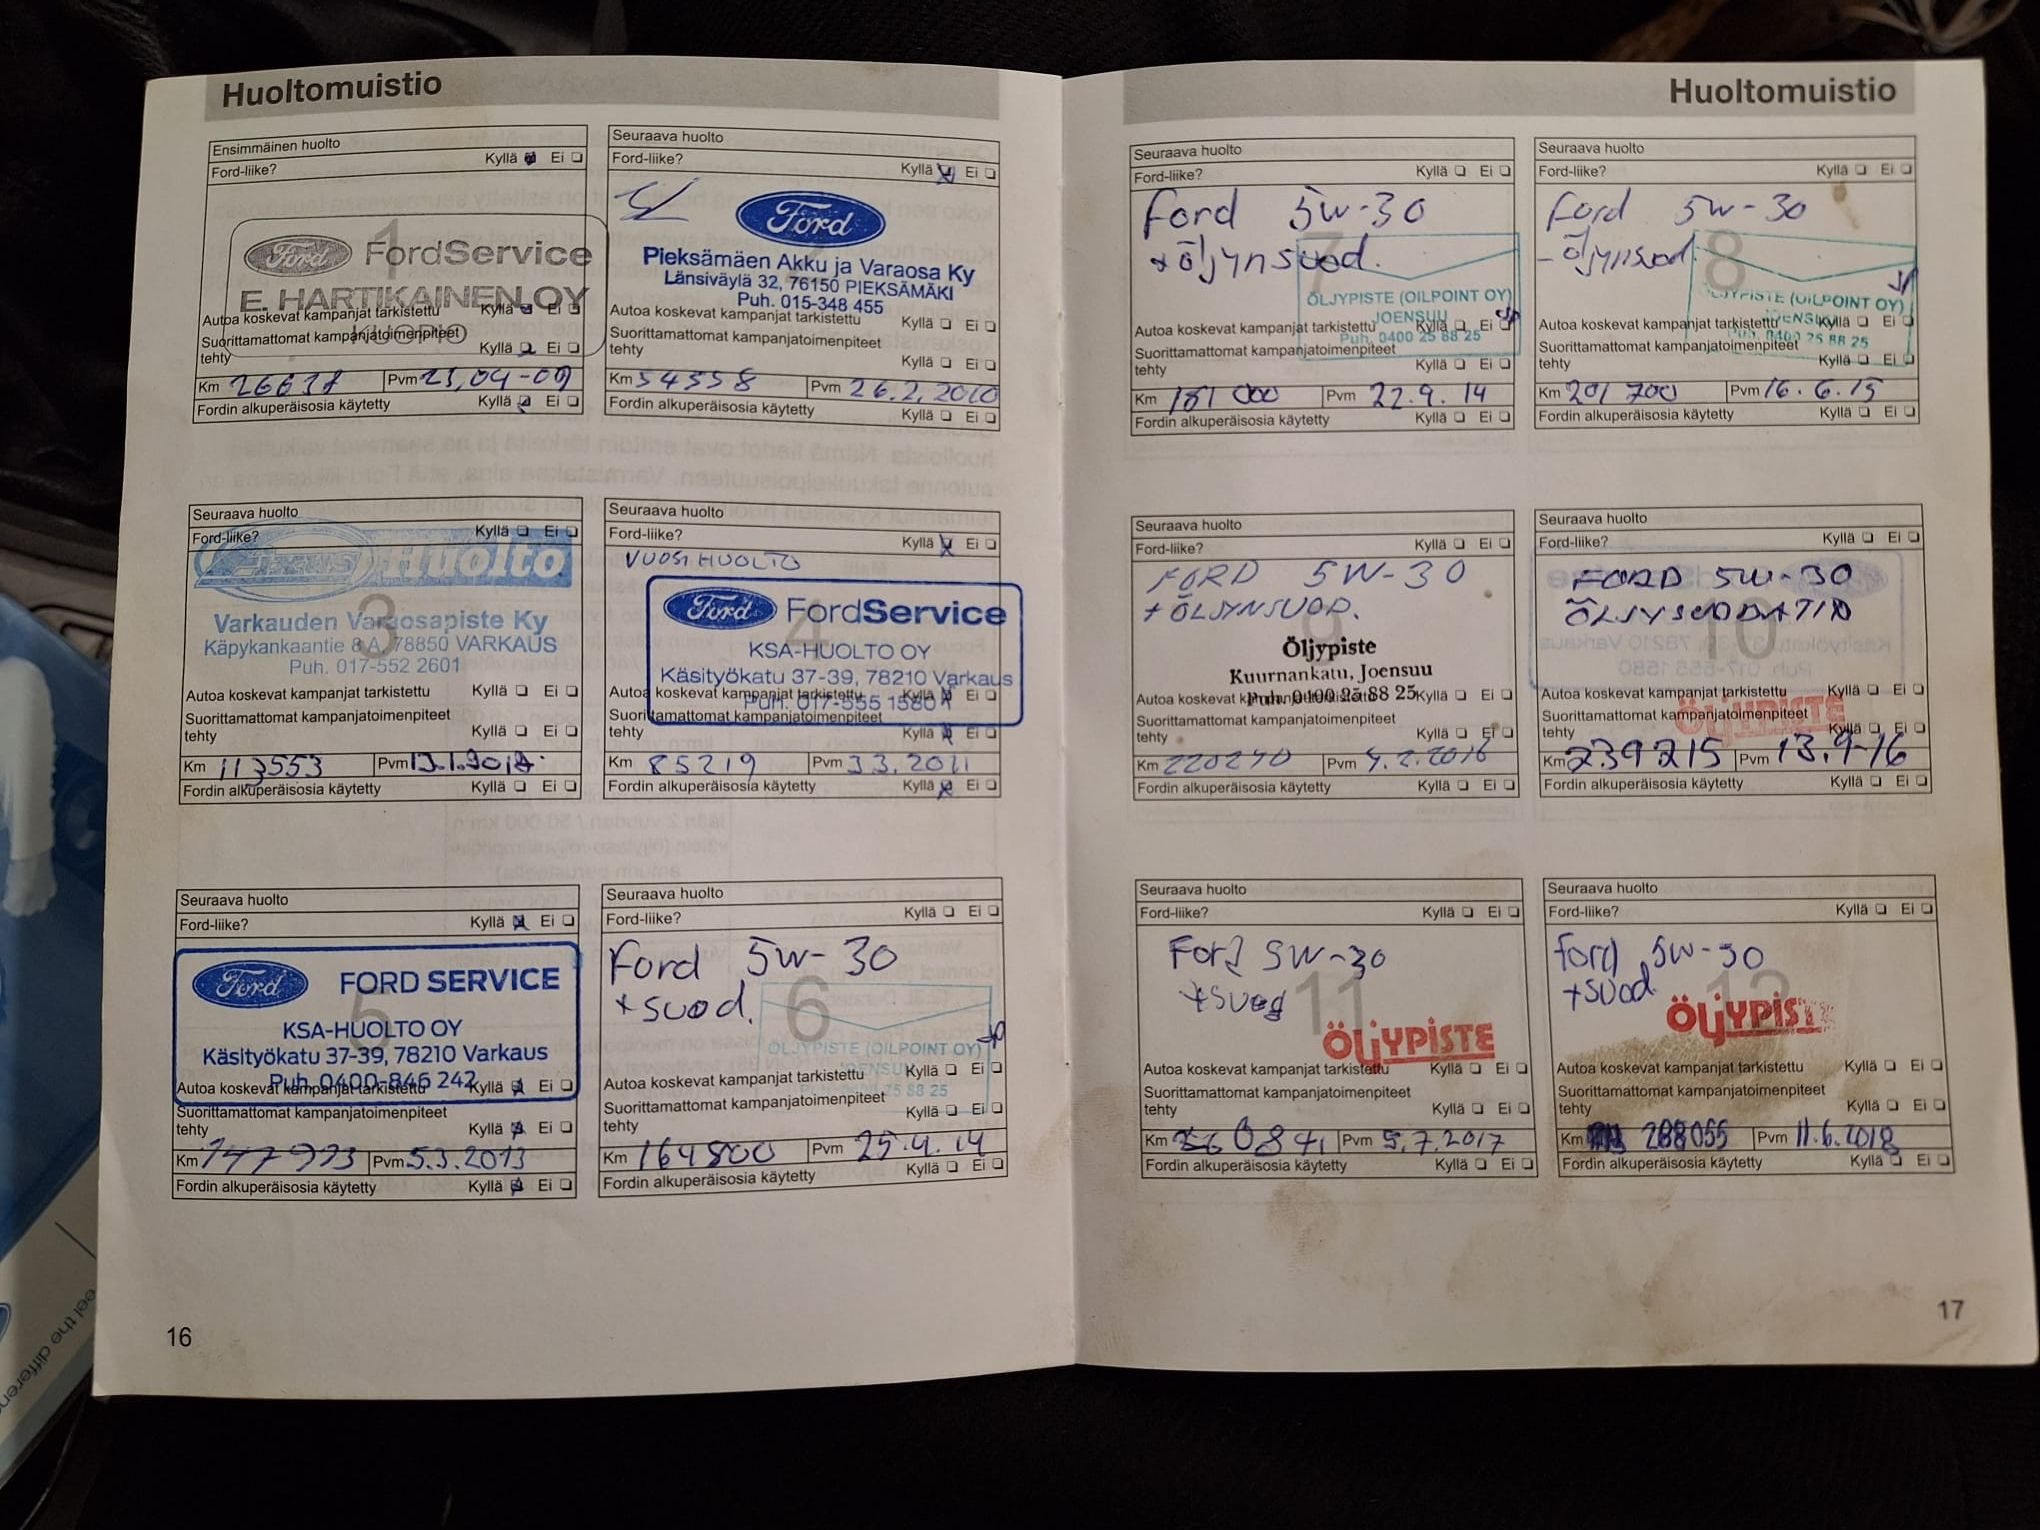 Huoltomuistio
Ensimmäinen huolto
Ford-liike? Kyllä Ei
1
Ford FordService
E. HARTIKAINEN OY
KUOPIO
Autoa koskevat kampanjat tarkistettu Kyllä Ei
Suorittamattomat kampanjatoimenpiteet
tehty Kyllä Ei
Km Pvm
Fordin alkuperäisosia käytetty Kyllä Ei
Seuraava huolto
Ford-liike? Kyllä Ei
Ford
Pieksämäen Akku ja Varaosa Ky
Länsiväylä 32, 76150 PIEKSÄMÄKI
Puh. 015-348 455
Autoa koskevat kampanjat tarkistettu Kyllä Ei
Suorittamattomat kampanjatoimenpiteet
tehty Kyllä Ei
Km 54558 Pvm 26.2.2010
Fordin alkuperäisosia käytetty Kyllä Ei
Seuraava huolto
Ford-liike? Kyllä Ei
Huolto
3
Varkauden Varaosapiste Ky
Käpykankaantie 8 A, 78850 VARKAUS
Puh. 017-552 2601
Autoa koskevat kampanjat tarkistettu Kyllä Ei
Suorittamattomat kampanjatoimenpiteet
tehty Kyllä Ei
Km 113553 Pvm
Fordin alkuperäisosia käytetty Kyllä Ei
Seuraava huolto
Ford-liike? Kyllä Ei
VUOSIHUOLTO
4
Ford FordService
KSA-HUOLTO OY
Käsityökatu 37-39, 78210 Varkaus
Puh. 017-555 1580
Autoa koskevat kampanjat tarkistettu Kyllä Ei
Suorittamattomat kampanjatoimenpiteet
tehty Kyllä Ei
Km 85219 Pvm 3.3.2011
Fordin alkuperäisosia käytetty Kyllä Ei
Seuraava huolto
Ford-liike? Kyllä Ei
5
Ford FORD SERVICE
KSA-HUOLTO OY
Käsityökatu 37-39, 78210 Varkaus
Puh. 0400-846 242
Autoa koskevat kampanjat tarkistettu Kyllä Ei
Suorittamattomat kampanjatoimenpiteet
tehty Kyllä Ei
Km Pvm 5.3.2013
Fordin alkuperäisosia käytetty Kyllä Ei
Seuraava huolto
Ford-liike? Kyllä Ei
Ford 5W-30
+ suod.
6
ÖLJYPISTE (OILPOINT OY)
JOENSUU
Autoa koskevat kampanjat tarkistettu Kyllä Ei
Suorittamattomat kampanjatoimenpiteet
tehty Kyllä Ei
Km 164800 Pvm 25.4.14
Fordin alkuperäisosia käytetty Kyllä Ei
16
Huoltomuistio
Seuraava huolto
Ford-liike? Kyllä Ei
Ford 5W-30
+ öljynsuod.
7
ÖLJYPISTE (OILPOINT OY)
JOENSUU
Puh. 0400 25 88 25
Autoa koskevat kampanjat tarkistettu Kyllä Ei
Suorittamattomat kampanjatoimenpiteet
tehty Kyllä Ei
Km 181 000 Pvm 22.9.14
Fordin alkuperäisosia käytetty Kyllä Ei
Seuraava huolto
Ford-liike? Kyllä Ei
Ford 5W-30
- öljynsuod.
8
ÖLJYPISTE (OILPOINT OY)
JOENSUU
Puh. 0400 25 88 25
Autoa koskevat kampanjat tarkistettu Kyllä Ei
Suorittamattomat kampanjatoimenpiteet
tehty Kyllä Ei
Km 201 700 Pvm 16.6.15
Fordin alkuperäisosia käytetty Kyllä Ei
Seuraava huolto
Ford-liike? Kyllä Ei
FORD 5W-30
+ ÖLJYNSUOD.
9
Öljypiste
Kuurnankatu, Joensuu
Puh. 0400 25 88 25
Autoa koskevat kampanjat tarkistettu Kyllä Ei
Suorittamattomat kampanjatoimenpiteet
tehty Kyllä Ei
Km 220240 Pvm 4.2.2016
Fordin alkuperäisosia käytetty Kyllä Ei
Seuraava huolto
Ford-liike? Kyllä Ei
FORD 5W-30
ÖLJYSUODATIN
10
Autoa koskevat kampanjat tarkistettu Kyllä Ei
ÖLJYPISTE
Suorittamattomat kampanjatoimenpiteet
tehty Kyllä Ei
Km 239215 Pvm 13.9-16
Fordin alkuperäisosia käytetty Kyllä Ei
Seuraava huolto
Ford-liike? Kyllä Ei
Ford 5W-30
+suod
11
ÖLJYPISTE
Autoa koskevat kampanjat tarkistettu Kyllä Ei
Suorittamattomat kampanjatoimenpiteet
tehty Kyllä Ei
Km Pvm 5.7.2017
Fordin alkuperäisosia käytetty Kyllä Ei
Seuraava huolto
Ford-liike? Kyllä Ei
Ford 5W-30
+suod
12
ÖLJYPISTE
Autoa koskevat kampanjat tarkistettu Kyllä Ei
Suorittamattomat kampanjatoimenpiteet
tehty Kyllä Ei
Km 288055 Pvm 11.6.2018
Fordin alkuperäisosia käytetty Kyllä Ei
17